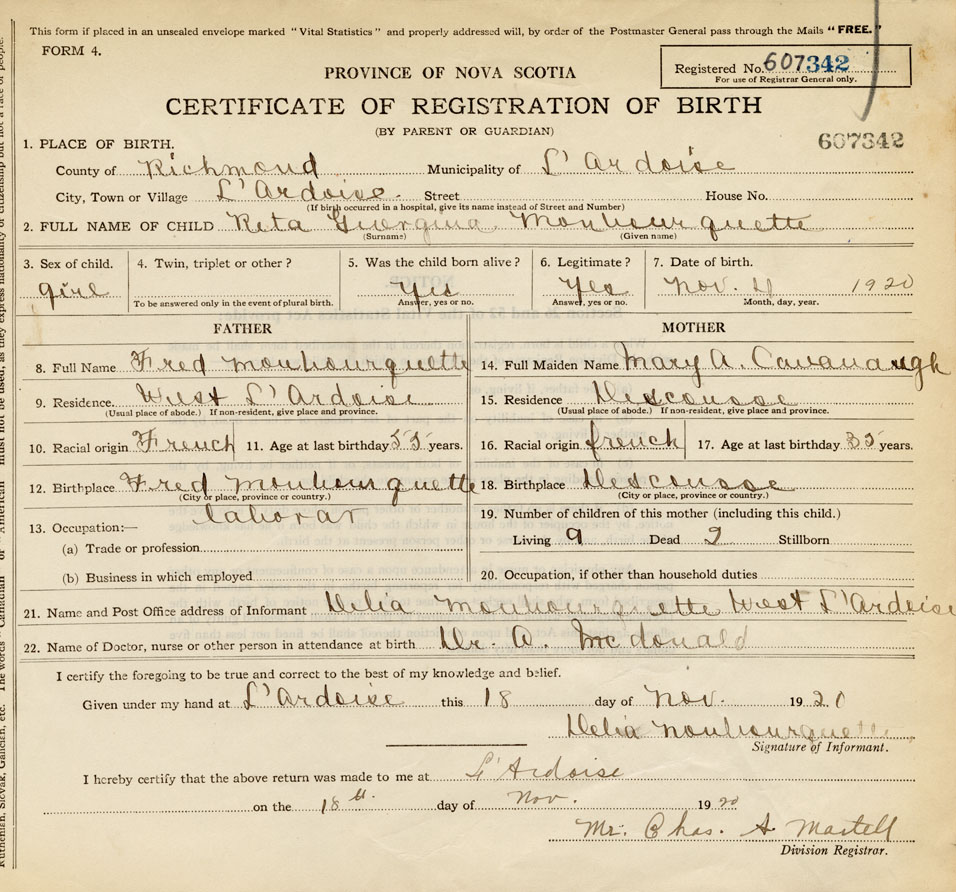 This form if placed in an unsealed envelope marked "Vital Statistics" and properly addressed will, by order of the Postmaster General pass through the Mails "FREE."
FORM 4.
Registered No. 607342
For use of Registrar General only.
PROVINCE OF NOVA SCOTIA
CERTIFICATE OF REGISTRATION OF BIRTH
(BY PARENT OR GUARDIAN)
607342
1. PLACE OF BIRTH.
County of Richmond Municipality of L'Ardoise
City, Town or Village L'Ardoise Street House No.
(If birth occurred in a hospital, give its name instead of Street and Number)
2. FULL NAME OF CHILD Reta Georgina Monbourquette
(Surname) (Given name)
3. Sex of child. 4. Twin, triplet or other? 5. Was the child born alive? 6. Legitimate? 7. Date of birth.
girl Yes Yes Nov. 11 1920
To be answered only in the event of plural birth. Answer, yes or no. Answer, yes or no. Month, day, year.
FATHER MOTHER
8. Full Name Fred Monbourquette 14. Full Maiden Name Mary A. Cavanaugh
9. Residence. West L'Ardoise 15. Residence Descousse
(Usual place of abode.) If non-resident, give place and province. (Usual place of abode.) If non-resident, give place and province.
10. Racial origin French 11. Age at last birthday 55 years. 16. Racial origin french 17. Age at last birthday 35 years.
12. Birthplace Fred Monbourquette 18. Birthplace Descousse
(City or place, province or country.) (City or place, province or country.)
13. Occupation:— laborar 19. Number of children of this mother (including this child.)
(a) Trade or profession Living 9 Dead 2 Stillborn
(b) Business in which employed 20. Occupation, if other than household duties
21. Name and Post Office address of Informant Delia Monbourquette West L'Ardoise
22. Name of Doctor, nurse or other person in attendance at birth Dr. A. McDonald
I certify the foregoing to be true and correct to the best of my knowledge and belief.
Given under my hand at L'Ardoise this 18 day of Nov. 1920
Delia Monbourquette
Signature of Informant.
I hereby certify that the above return was made to me at L'Ardoise
on the 18th day of Nov. 1920
Mr. Chas. A Martell
Division Registrar.